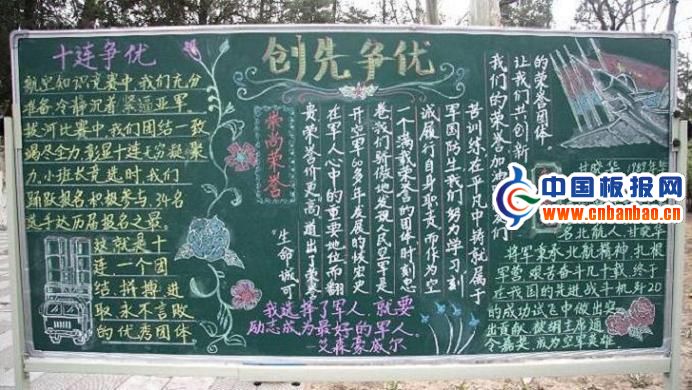 十连争优
航空知识竞赛中,我们充分
准备,冷静沉着紧逼亚军
拔河比赛中,我们团结一致
竭尽全力,彰显十连无穷凝聚
力,小班长竞选时我们
踊跃报名积极参与,34名
选手达历届报名之最。
这就是十
连一个团
结拼搏进
取永不言败
的优秀团体
创先争优
崇尚荣誉
“生命诚可
贵荣誉价更高”道出了荣誉
在军人心中的重要地位而翻
开空军60多年发展的候宏史
卷我们骄傲地发现人民空军是
一个满载荣誉的团体时刻忠
诚履行自身职责而作为空
军国防生我们努力学习刻
苦训练在平凡中铸就属于
我们的荣誉加油
让我们共创新
的荣誉团体。
我选择了军人,就要
励志成为最好的军人
艾森豪威尔
甘晓华
名北航人,甘晓华
将军秉承北航精神,扎根
军营艰苦奋斗几十载终于
在我国的先进战斗机歼20
的成功试飞中做出突
出贡献 被胡主席通
令嘉奖 成为空军英雄
中国板报网
www.cnbanbao.cn